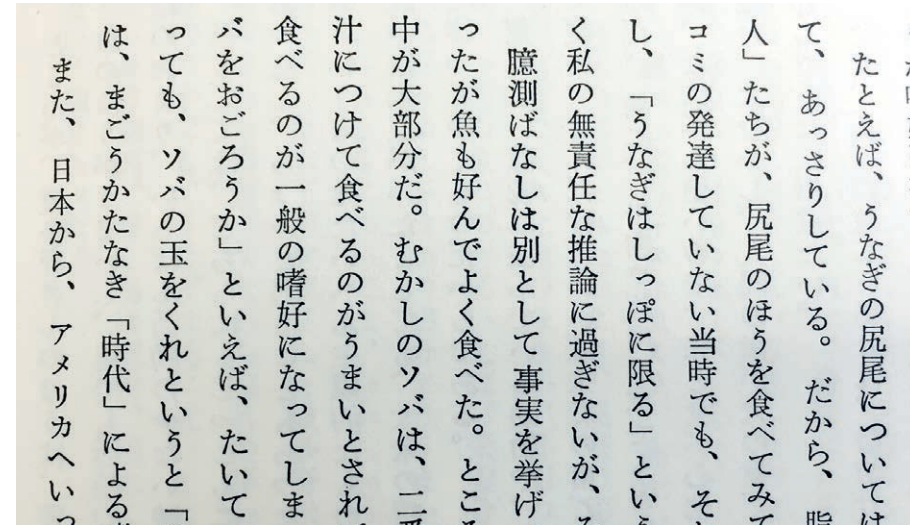 たとえば、うなぎの尻尾については
て、あっさりしている。だから、脂
人」たちが、尻尾のほうを食べてみて
コミの発達していない当時でも、そ
し、「うなぎはしっぽに限る」という
く私の無責任な推論に過ぎないが、
臆測ばなしは別として事実を挙げ
ったが魚も好んでよく食べた。ところ
中が大部分だ。むかしのソバは、二番
汁につけて食べるのがうまいとされ
食べるのが一般の嗜好になってしま
バをおごろうか」といえば、たいて
っても、ソバの玉をくれというと「
は、まごうかたなき「時代」による
また、日本から、アメリカへいっ